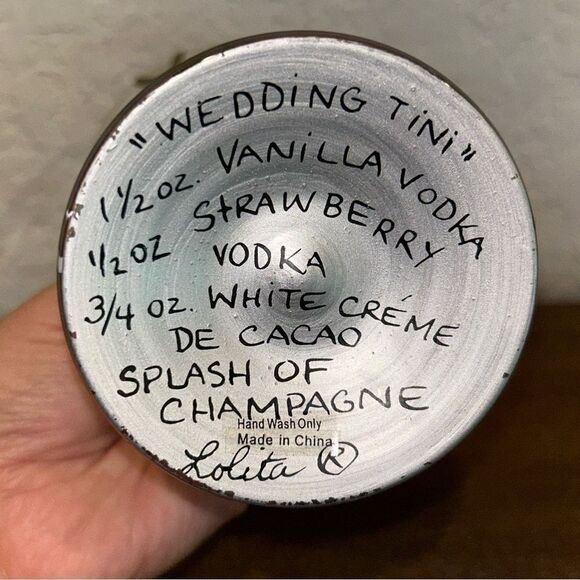 "WEDDING TINI"
1 1/2 OZ. VANILLA VODKA
1/2 OZ STRAWBERRY
VODKA
3/4 OZ. WHITE CRÉME
DE CACAO
SPLASH OF
CHAMPAGNE
Hand Wash Only
Made in China
Lolita ®